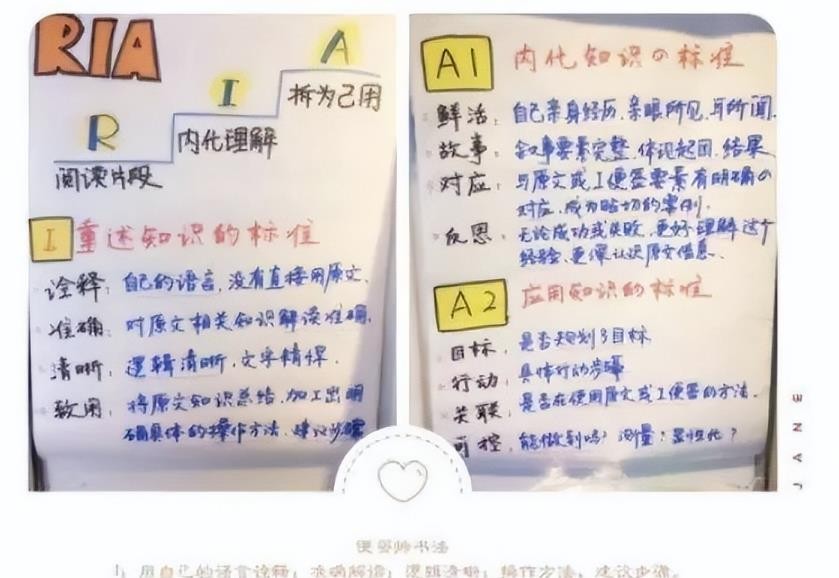 RIA
A
I
拆为己用
R
内化理解
阅读片段
I 重述知识的标准
诠释：自己的语言，没有直接用原文．
准确：对原文相关知识解读准确．
清晰：逻辑清晰，文字精悍．
致用：将原文知识总结，加工出明
确具体的操作方法、建议步骤
A1 内化知识的标准
鲜活：自己亲身经历，亲眼所见，耳所闻．
故事：叙事要素完整，体现起因、结果
对应：与原文或I便签要素有明确の
对应，成为贴切的案例．
反思：无论成功或失败，更好理解这个
经验、更深认识原文信息．
A2 应用知识的标准
目标，是否规划了目标
行动：具体行动步骤
关联：是否在使用原文或I便签的方法．
可控，能做到吗？测量？显性化？
JANE
便签帅书法
1、用自己的语言诠释；准确解读；逻辑清晰；操作方法、建议步骤。